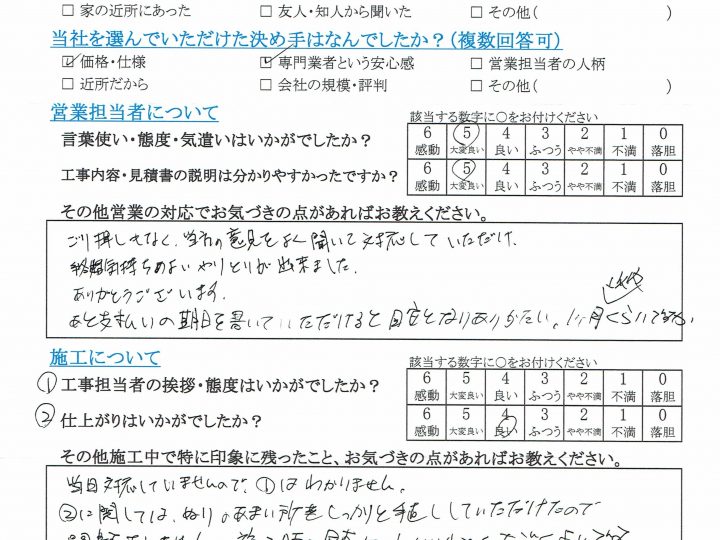 □ 家の近所にあった □ 友人・知人から聞いた □ その他( )
当社を選んでいただけた決め手はなんでしたか?(複数回答可)
☑ 価格・仕様 ☑ 専門業者という安心感 □ 営業担当者の人柄
□ 近所だから □ 会社の規模・評判 □ その他( )
営業担当者について
該当する数字に○をお付けください
言葉使い・態度・気遣いはいかがでしたか?
6 5 4 3 2 1 0
感動 大変良い 良い ふつう やや不満 不満 落胆
工事内容・見積書の説明は分かりやすかったですか?
6 5 4 3 2 1 0
感動 大変良い 良い ふつう やや不満 不満 落胆
その他営業の対応でお気づきの点があればお教えください。
ごり押しもなく、当方の意見をよく聞いて対応していただけ、
気持ちのよいやりとりが出来ました。
ありがとうございます。
あと支払いの期日を書いていただけると目安となりありがたい。1ヶ月くらい
施工について
該当する数字に○をお付けください
① 工事担当者の挨拶・態度はいかがでしたか?
6 5 4 3 2 1 0
感動 大変良い 良い ふつう やや不満 不満 落胆
② 仕上がりはいかがでしたか?
6 5 4 3 2 1 0
感動 大変良い 良い ふつう やや不満 不満 落胆
その他施工中で特に印象に残ったこと、お気づきの点があればお教えください。
当日対応していませんので、①はわかりません。
②に関しては、ぬりのあまい所をしっかりと手直ししていただけたので